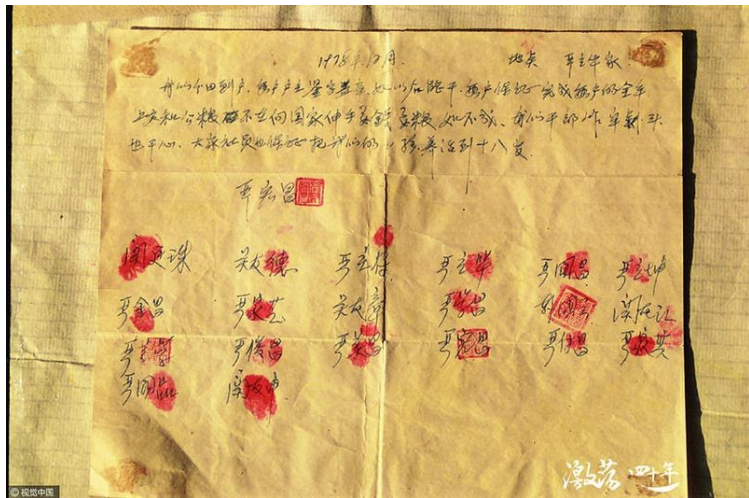 1978年12月 地点 严立华家
我们分田到户,每户户主签字盖章,如以后能干,每户保证完成每户的全年
上交和公粮 不在向国家伸手要钱要粮,如不成,我们干部作牢刹头
也干心,大家社员也保证把我们的小孩养活到十八岁.
严宏昌
关廷珠 关友德 严立符 严立华 严国昌 严立坤
严金昌 严家芝 关友章 严学昌 韩国云 关友江
严立学 严俊昌 严美昌 严宏昌 严付昌 严家其
严国品 关友坤
激荡 四十年
© 视觉中国